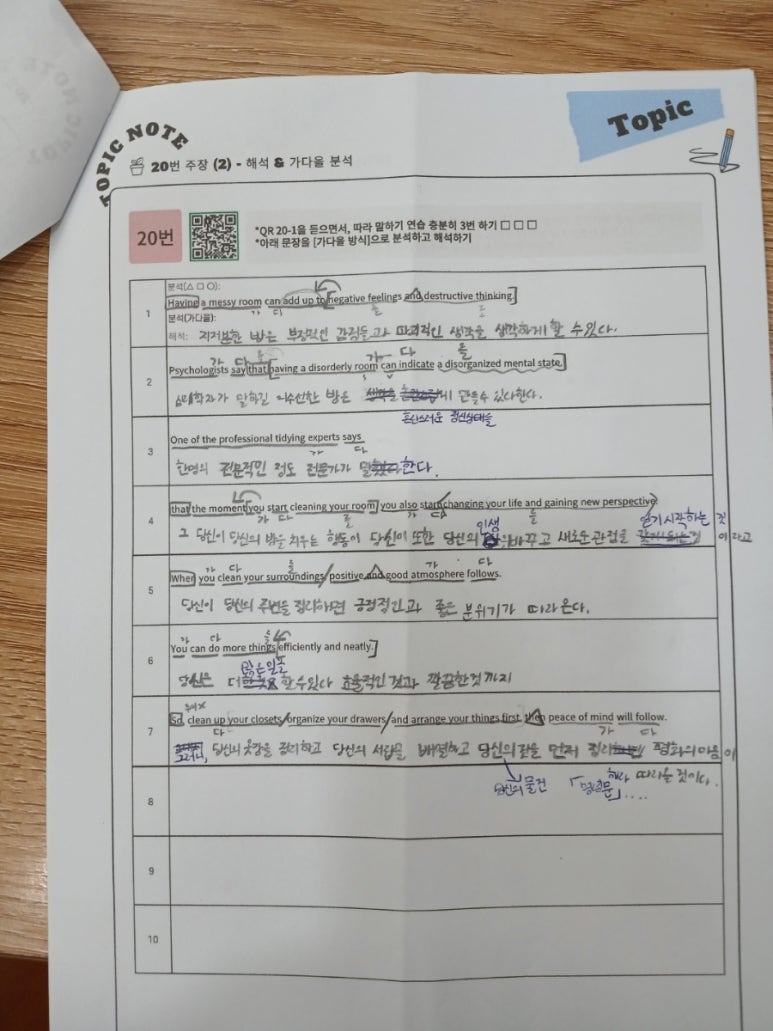 TOPIC NOTE
Topic
20번 주장 (2) - 해석 & 가다을 분석
20번
*QR 20-1을 듣으면서, 따라 말하기 연습 충분히 3번 하기 □ □ □
*아래 문장을 [가다을 방식]으로 분석하고 해석하기
분석(△ □ ○):
1
Having a messy room can add up to negative feelings and destructive thinking.
가 다 을
분석(가다을):
해석: 지저분한 방은 부정적인 감정들과 파괴적인 생각을 생각하게 할 수 있다.
가 다 을 가 다 을
2
Psychologists say that having a disorderly room can indicate a disorganized mental state.
심리학자가 말하길 어수선한 방은 수있다한다.
혼란스러운 정신상태를
3
One of the professional tidying experts says
가 다
한명의 전문적인 정도 전문가가 말한다.
4
that the moment you start cleaning your room, you also start changing your life and gaining new perspective.
가 다 을 가 다 을
인생 얻기 시작하는 것
그 당신이 당신의 방을 치우는 행동이 당신이 또한 당신의 바꾸고 새로운 관점을 이라고
가 다 을 가 다
5
When you clean your surroundings, positive and good atmosphere follows.
당신이 당신의 주변을 정리하면 긍정적인과 좋은 분위기가 따라온다.
가 다 을
6
You can do more things efficiently and neatly.
많은 일을
당신은 더 할 수 있다 효율적인 것과 깔끔한것 까지
7
So, clean up your closets, organize your drawers, and arrange your things first, then peace of mind will follow.
다 가 다
그러니, 당신의 옷장을 정리하고 당신의 서랍을 배열하고 당신의 것을 먼저 정리 평화의 마음이
당신의 물건 「명령문」.... 해라 따라올 것이다.
8
9
10